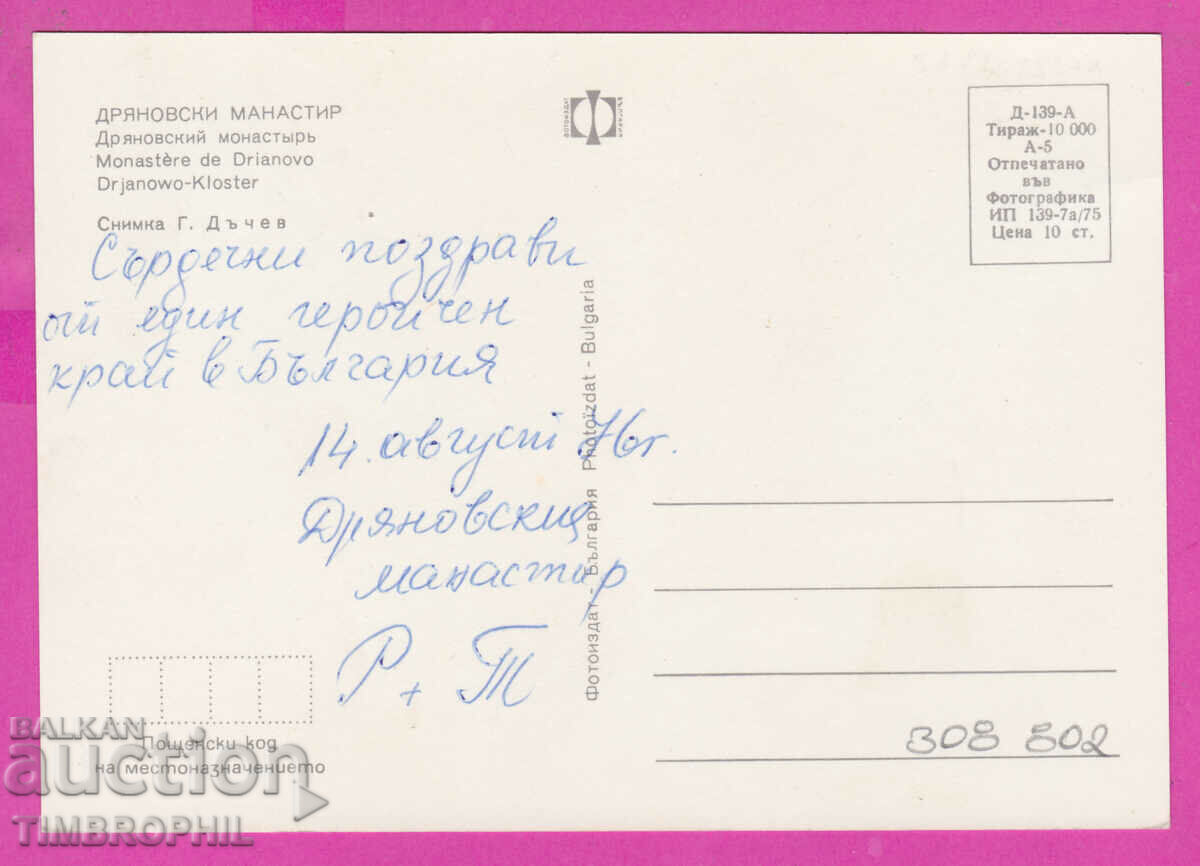 ДРЯНОВСКИ МАНАСТИР
Дряновский монастырь
Monastère de Drianovo
Drjanowo-Kloster
Снимка Г. Дъчев
Сърдечни поздрави
от един героичен
край в България
14. август 76 г.
Дряновски
манастир
Р + Т
Пощенски код
на местоназначението
ФОТОИЗДАТ
БЪЛГАРИЯ
Фотоиздат - България Photoïzdat - Bulgaria
Д-139-А
Тираж-10 000
А-5
Отпечатано
във
Фотографика
ИП 139-7а/75
Цена 10 ст.
308 802
BALKAN
auction
TIMBROPHIL